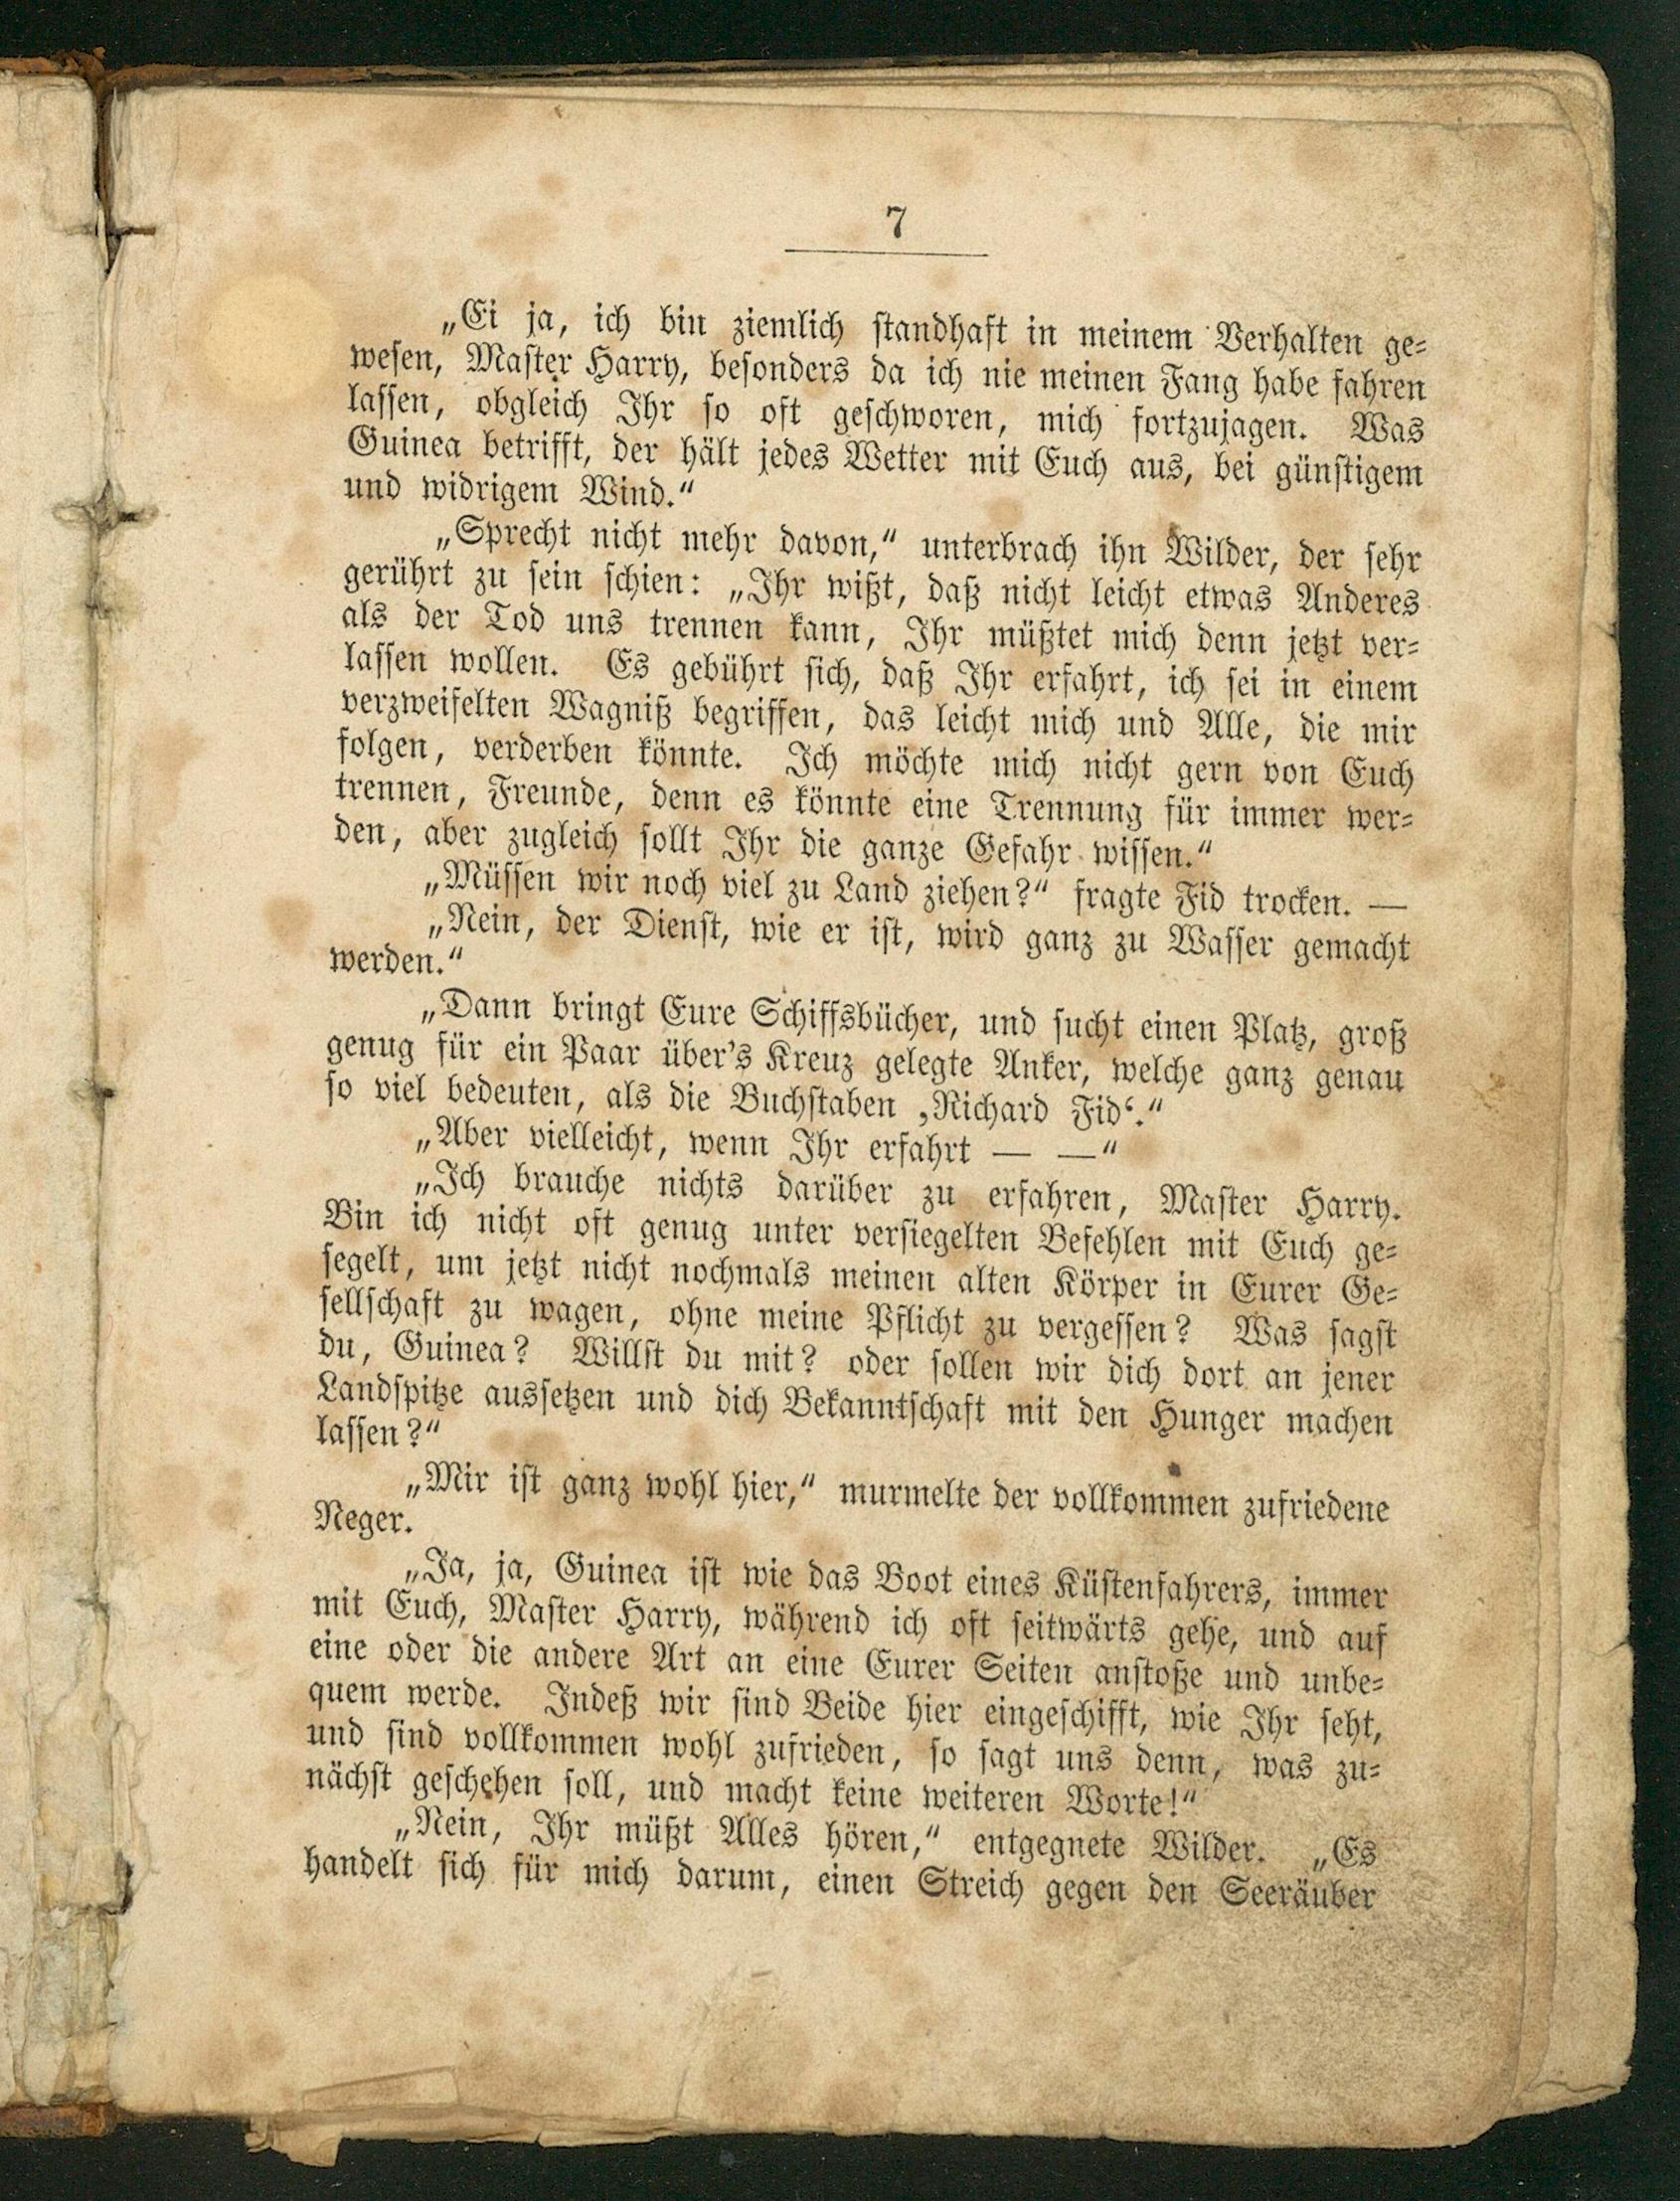 7
„Ei ja, ich bin ziemlich standhaft in meinem Verhalten ge-
wesen, Master Harry, besonders da ich nie meinen Fang habe fahren
lassen, obgleich Ihr so oft geschworen, mich fortzujagen. Was
Guinea betrifft, der hält jedes Wetter mit Euch aus, bei günstigem
und widrigem Wind.“
„Sprecht nicht mehr davon,“ unterbrach ihn Wilder, der sehr
gerührt zu sein schien: „Ihr wißt, daß nicht leicht etwas Anderes
als der Tod uns trennen kann, Ihr müßtet mich denn jetzt ver-
lassen wollen. Es gebührt sich, daß Ihr erfahrt, ich sei in einem
verzweifelten Wagniß begriffen, das leicht mich und Alle, die mir
folgen, verderben könnte. Ich möchte mich nicht gern von Euch
trennen, Freunde, denn es könnte eine Trennung für immer wer-
den, aber zugleich sollt Ihr die ganze Gefahr wissen.“
„Müssen wir noch viel zu Land ziehen?“ fragte Fid trocken. —
„Nein, der Dienst, wie er ist, wird ganz zu Wasser gemacht
werden.“
„Dann bringt Eure Schiffsbücher, und sucht einen Platz, groß
genug für ein Paar über's Kreuz gelegte Anker, welche ganz genau
so viel bedeuten, als die Buchstaben ‚Richard Fid‘.“
„Aber vielleicht, wenn Ihr erfahrt — —“
„Ich brauche nichts darüber zu erfahren, Master Harry.
Bin ich nicht oft genug unter versiegelten Befehlen mit Euch ge-
segelt, um jetzt nicht nochmals meinen alten Körper in Eurer Ge-
sellschaft zu wagen, ohne meine Pflicht zu vergessen? Was sagst
du, Guinea? Willst du mit? oder sollen wir dich dort an jener
Landspitze aussetzen und dich Bekanntschaft mit den Hunger machen
lassen?“
„Mir ist ganz wohl hier,“ murmelte der vollkommen zufriedene
Neger.
„Ja, ja, Guinea ist wie das Boot eines Küstenfahrers, immer
mit Euch, Master Harry, während ich oft seitwärts gehe, und auf
eine oder die andere Art an eine Eurer Seiten anstoße und unbe-
quem werde. Indeß wir sind Beide hier eingeschifft, wie Ihr seht,
und sind vollkommen wohl zufrieden, so sagt uns denn, was zu-
nächst geschehen soll, und macht keine weiteren Worte!“
„Nein, Ihr müßt Alles hören,“ entgegnete Wilder. „Es
handelt sich für mich darum, einen Streich gegen den Seeräuber